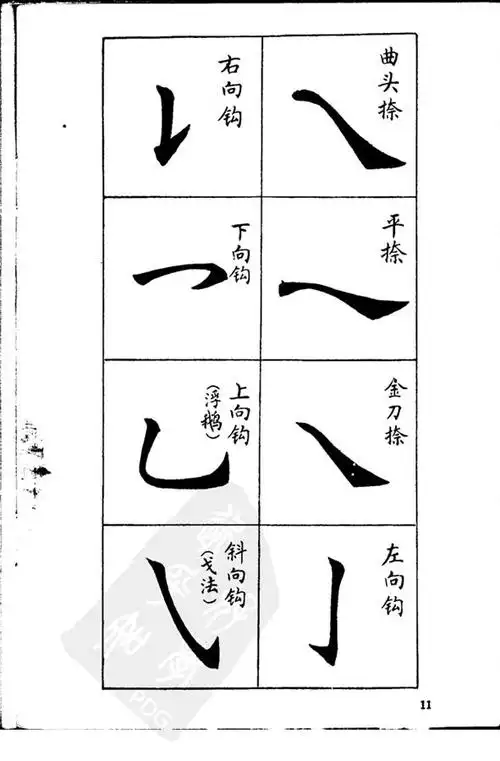 曲头捺
平捺
金刀捺
左向钩
右向钩
下向钩
上向钩
(浮鹅)
斜向钩
(戈法)
11